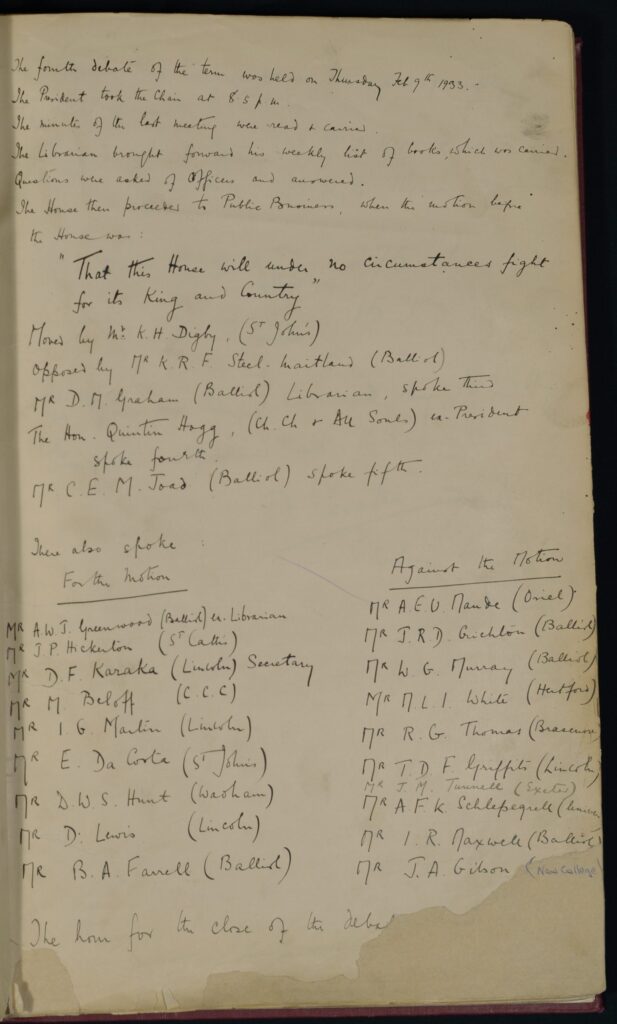 The fourth debate of the term was held on Thursday Feb 9th 1933. -
The President took the Chair at 8 5 p m.
The minutes of the last meeting were read & carried.
The Librarian brought forward his weekly list of books, which was carried.
Questions were asked of Officers and answered.
The House then proceeded to Public Business, when the motion before
the House was:
"That this House will under no circumstances fight
for its King and Country"
Moved by Mr K.H. Digby, (St John's)
Opposed by Mr K.R.F. Steel-Maitland (Balliol)
Mr D.M. Graham (Balliol) Librarian, spoke third
The Hon. Quintin Hogg, (Ch.Ch & All Souls) ex-President
spoke fourth.
Mr C.E.M. Joad (Balliol) spoke fifth.
There also spoke :
For the Motion
Mr A.W.J. Greenwood (Balliol) ex-Librarian
Mr J.P. Hickerton (St Cath's)
Mr D.F. Karaka (Lincoln) Secretary
Mr M. Beloff (C.C.C)
Mr I.G. Martin (Lincoln)
Mr E. Da Costa (St John's)
Mr D.W.S. Hunt (Wadham)
Mr D. Lewis (Lincoln)
Mr B.A. Farrell (Balliol)
Against the Motion
Mr A.E.U. Maude (Oriel)
Mr J.R.D. Crichton (Balliol)
Mr W.G. Murray (Balliol)
Mr M.L.I. White (Hertford)
Mr R.G. Thomas (Brasenose
Mr T.D.F. Griffits (Lincoln)
Mr J.M. Tunnell (Exeter)
Mr A F.K. Schlepegrell
Mr I.R. Maxwell (Balliol)
Mr J.A. Gibson (New College)
The hour for the close of the debat